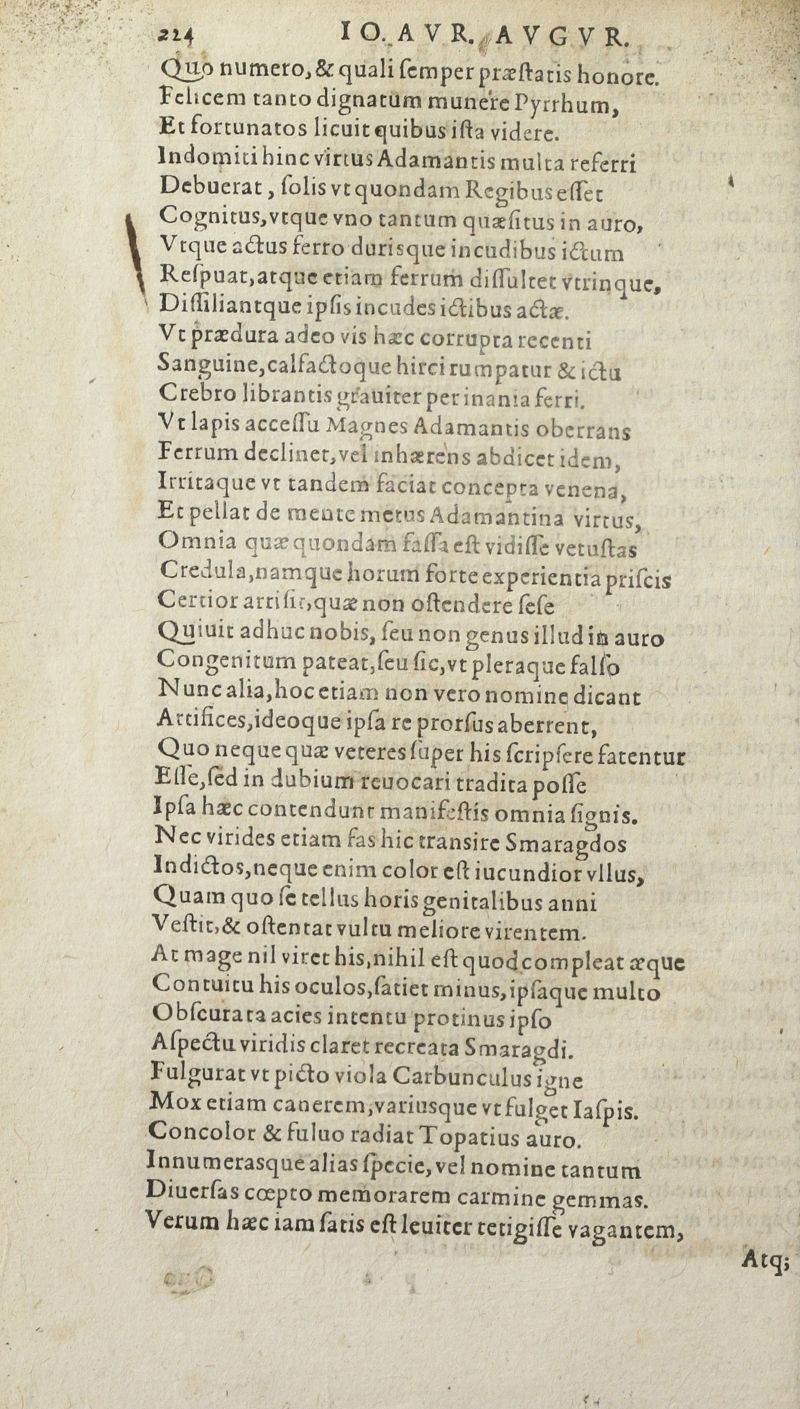 224 IO. AVR. AVGVR.
Quo numero, & quali ſemper præſtatis honore.
Felicem tanto dignatum munere Pyrrhum,
Et fortunatos licuit quibus iſta videre.
Indomiti hinc virtus Adamantis multa referri
Debuerat, ſolis vt quondam Regibus eſſet
Cognitus, vtque vno tantum quæſitus in auro,
Vtque actus ferro durisque incudibus ictum
Reſpuat, atque etiam ferrum diſſultet vtrinque,
Diſſiliantque ipſis incudes ictibus actæ.
Vt prædura adeo vis hæc corrupta recenti
Sanguine, calfactoque hirci rumpatur & ictu
Crebro librantis grauiter per inania ferri.
Vt lapis acceſſu Magnes Adamantis oberrans
Ferrum declinet, vel inhærens abdicet idem,
Irritaque vt tandem faciat concepta venena,
Et pellat de mente metus Adamantina virtus,
Omnia quæ quondam faſſa eſt vidiſſe vetuſtas
Credula, namque horum forte experientia priſcis
Certior arriſit, quæ non oſtendere ſeſe
Quiuit adhuc nobis, ſeu non genus illud in auro
Congenitum pateat, ſeu ſic, vt pleraque falſo
Nunc alia, hoc etiam non vero nomine dicant
Artifices, ideoque ipſa re prorſus aberrent,
Quo neque quæ veteres ſuper his ſcripſere fatentur
Eſſe, ſed in dubium reuocari tradita poſſe
Ipſa hæc contendunt manifeſtis omnia ſignis.
Nec virides etiam fas hic transire Smaragdos
Indictos, neque enim color eſt iucundior vllus,
Quam quo ſe tellus horis genitalibus anni
Veſtit, & oſtentat vultu meliore virentem.
At mage nil viret his, nihil eſt quod compleat æque
Contuitu his oculos, ſatiet minus, ipſaque multo
Obſcurata acies intentu protinus ipſo
Aſpectu viridis claret recreata Smaragdi.
Fulgurat vt picto viola Carbunculus igne
Mox etiam canerem, variusque vt fulget Iaſpis.
Concolor & fuluo radiat Topatius auro.
Innumerasque alias ſpecie, vel nomine tantum
Diuerſas cœpto memorarem carmine gemmas.
Verum hæc iam ſatis eſt leuiter tetigiſſe vagantem,
Atq;